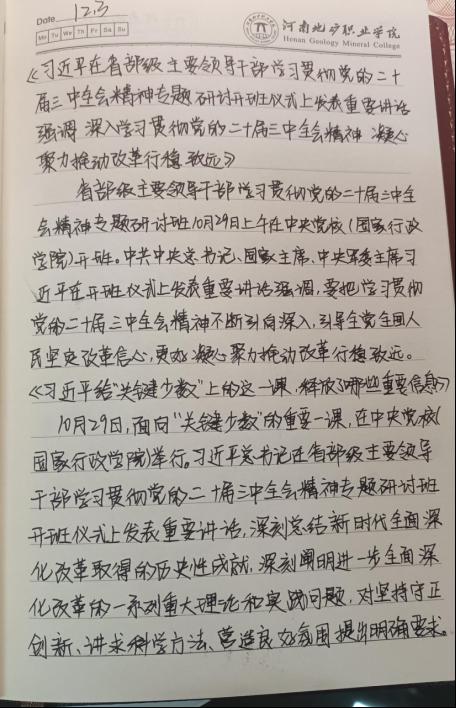 Date 12.3
Mo Tu We Th Fr Sa Su
河南地矿职业学院
Henan Geology Mineral College
《习近平在省部级主要领导干部学习贯彻党的二十
届三中全会精神专题研讨开班仪式上发表重要讲话
强调 深入学习贯彻党的二十届三中全会精神 凝心
聚力推动改革行稳致远》
省部级主要领导干部学习贯彻党的二十届三中全
会精神专题研讨班10月29日上午在中央党校(国家行政
学院)开班。中共中央总书记、国家主席、中央军委主席习
近平在开班仪式上发表重要讲话强调,要把学习贯彻
党的二十届三中全会精神不断引向深入,引导全党全国人
民坚定改革信心,更好凝心聚力推动改革行稳致远。
《习近平给“关键少数”上的这一课,释放了哪些重要信息》
10月29日,面向“关键少数”的重要一课,在中央党校(
国家行政学院)举行。习近平总书记在省部级主要领导
干部学习贯彻党的二十届三中全会精神专题研讨班
开班仪式上发表重要讲话,深刻总结新时代全面深
化改革取得的历史性成就,深刻阐明进一步全面深
化改革的一系列重大理论和实践问题,对坚持守正
创新、讲求科学方法、营造良好氛围提出明确要求。